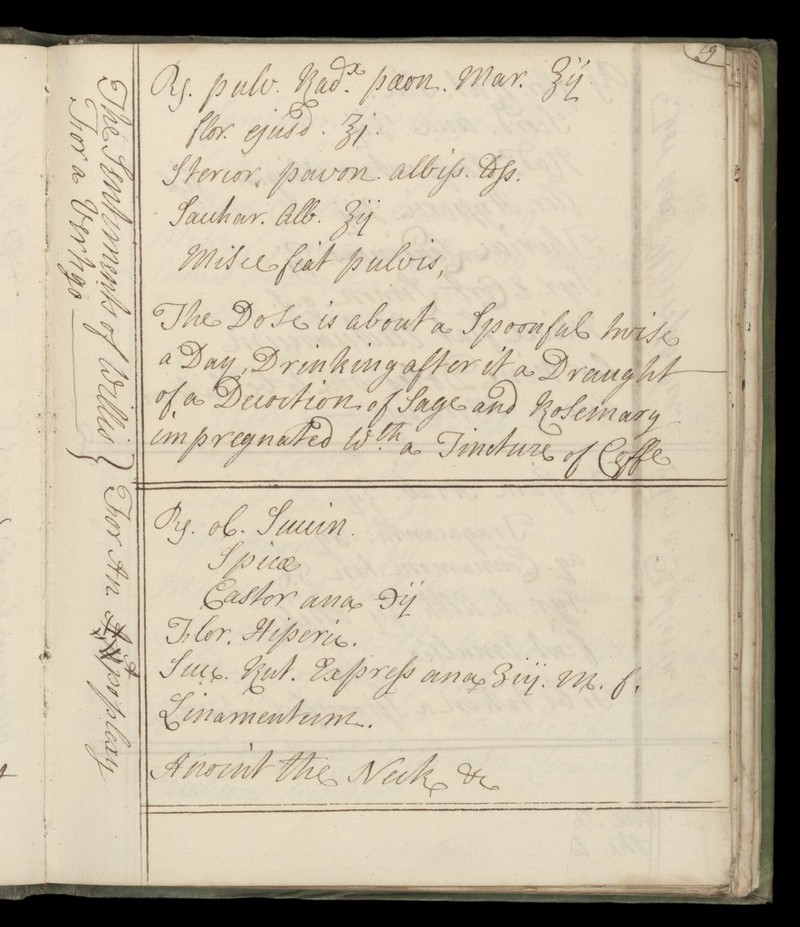 19
The Sentiments of Willis
For a Vertigo
℞. pulv. Radx. pæon. Mar. ℥ij
flor. ejusd. ℥j.
Stercor. pavon. albiss. ℔ss.
Sacchar. Alb. ℥ij
Misce fiat pulvis,
The Dose is about a Spoonful twise
a Day, Drinking after it a Draught
of a Decoction of Sage and Rosemary
impregnated Wth. a Tincture of Coffe
For An Apoplexy
℞. ol. Succin.
Spicæ
Castor ana ℈ij
Flor. Hiperic.
Succ. Rut. Express ana ℥iij. M. f.
Linamentum.
Anoint the Neck &c